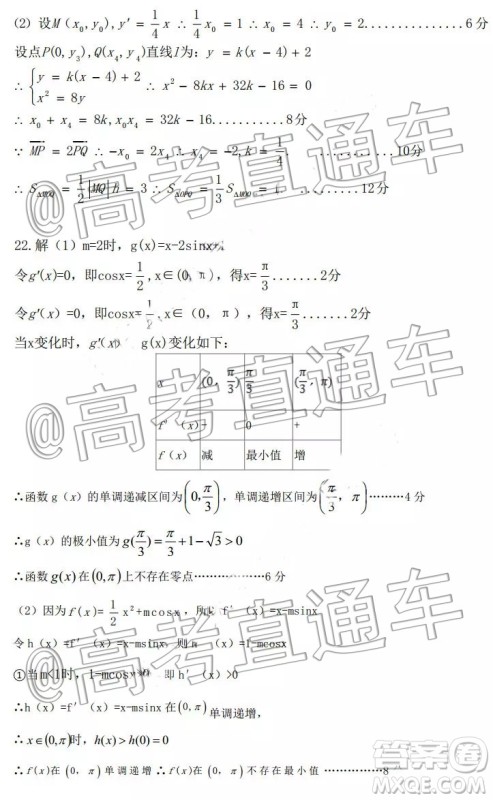 (2) 设M(x₀, y₀), y′ = 1/4 x ∴ 1/4 x₀ = 1 ∴ x₀ = 4 ∴ y₀ = 2..............6分
设点P(0, y₃), Q(x₄, y₄)直线l为: y = k(x - 4) + 2
∴ { y = k(x - 4) + 2
x² = 8y
∴ x² - 8kx + 32k - 16 = 0
∴ x₀ + x₄ = 8k, x₀x₄ = 32k - 16..........8分
∵ MP = 2PQ ∴ -x₀ = 2x₄ ∴ x₄ = -2, k = 1/4 ..............10分
∴ S△MOQ = 1/2 |MQ| h = 3 ∴ S△OPQ = 1/3 S△MOQ = 1. .........12分
22. 解（1）m=2时，g(x)=x-2sinx,
令g′(x)=0，即cosx=1/2, x∈(0, π)，得x=π/3.......2分
令g′(x) =0，即cosx=1/2, x∈（0，π），得x=π/3.......2分
当x变化时，g′(x) g(x)变化如下:
x (0, π/3) π/3 (π/3, π)
f′(x) - 0 +
f(x) 减 最小值 增
∴函数g（x）的单调递减区间为(0, π/3)，单调递增区间为(π/3, π)………4分
∴g（x）的极小值为g(π/3) = π/3 + 1 - √3 > 0
∴函数g(x)在(0,π)上不存在零点………………6分
（2）因为f(x)= 1/2 x²+mcosx，所以f′（x）=x-msinx
令h（x）=f′（x）=x-msinx，则 =1-mcosx
①当m<1时，1-mcosx 即h′（x）>0
∴h（x）=f′（x）=x-msinx在(0,π)单调递增,
∴ x∈(0,π)时，h(x) > h(0) = 0
∴f(x)在(0, π)单调递增∴f(x)在(0, π)不存在最小值 ……………8
@高考直通车
@高考直通车
@高考直通车
答案圈